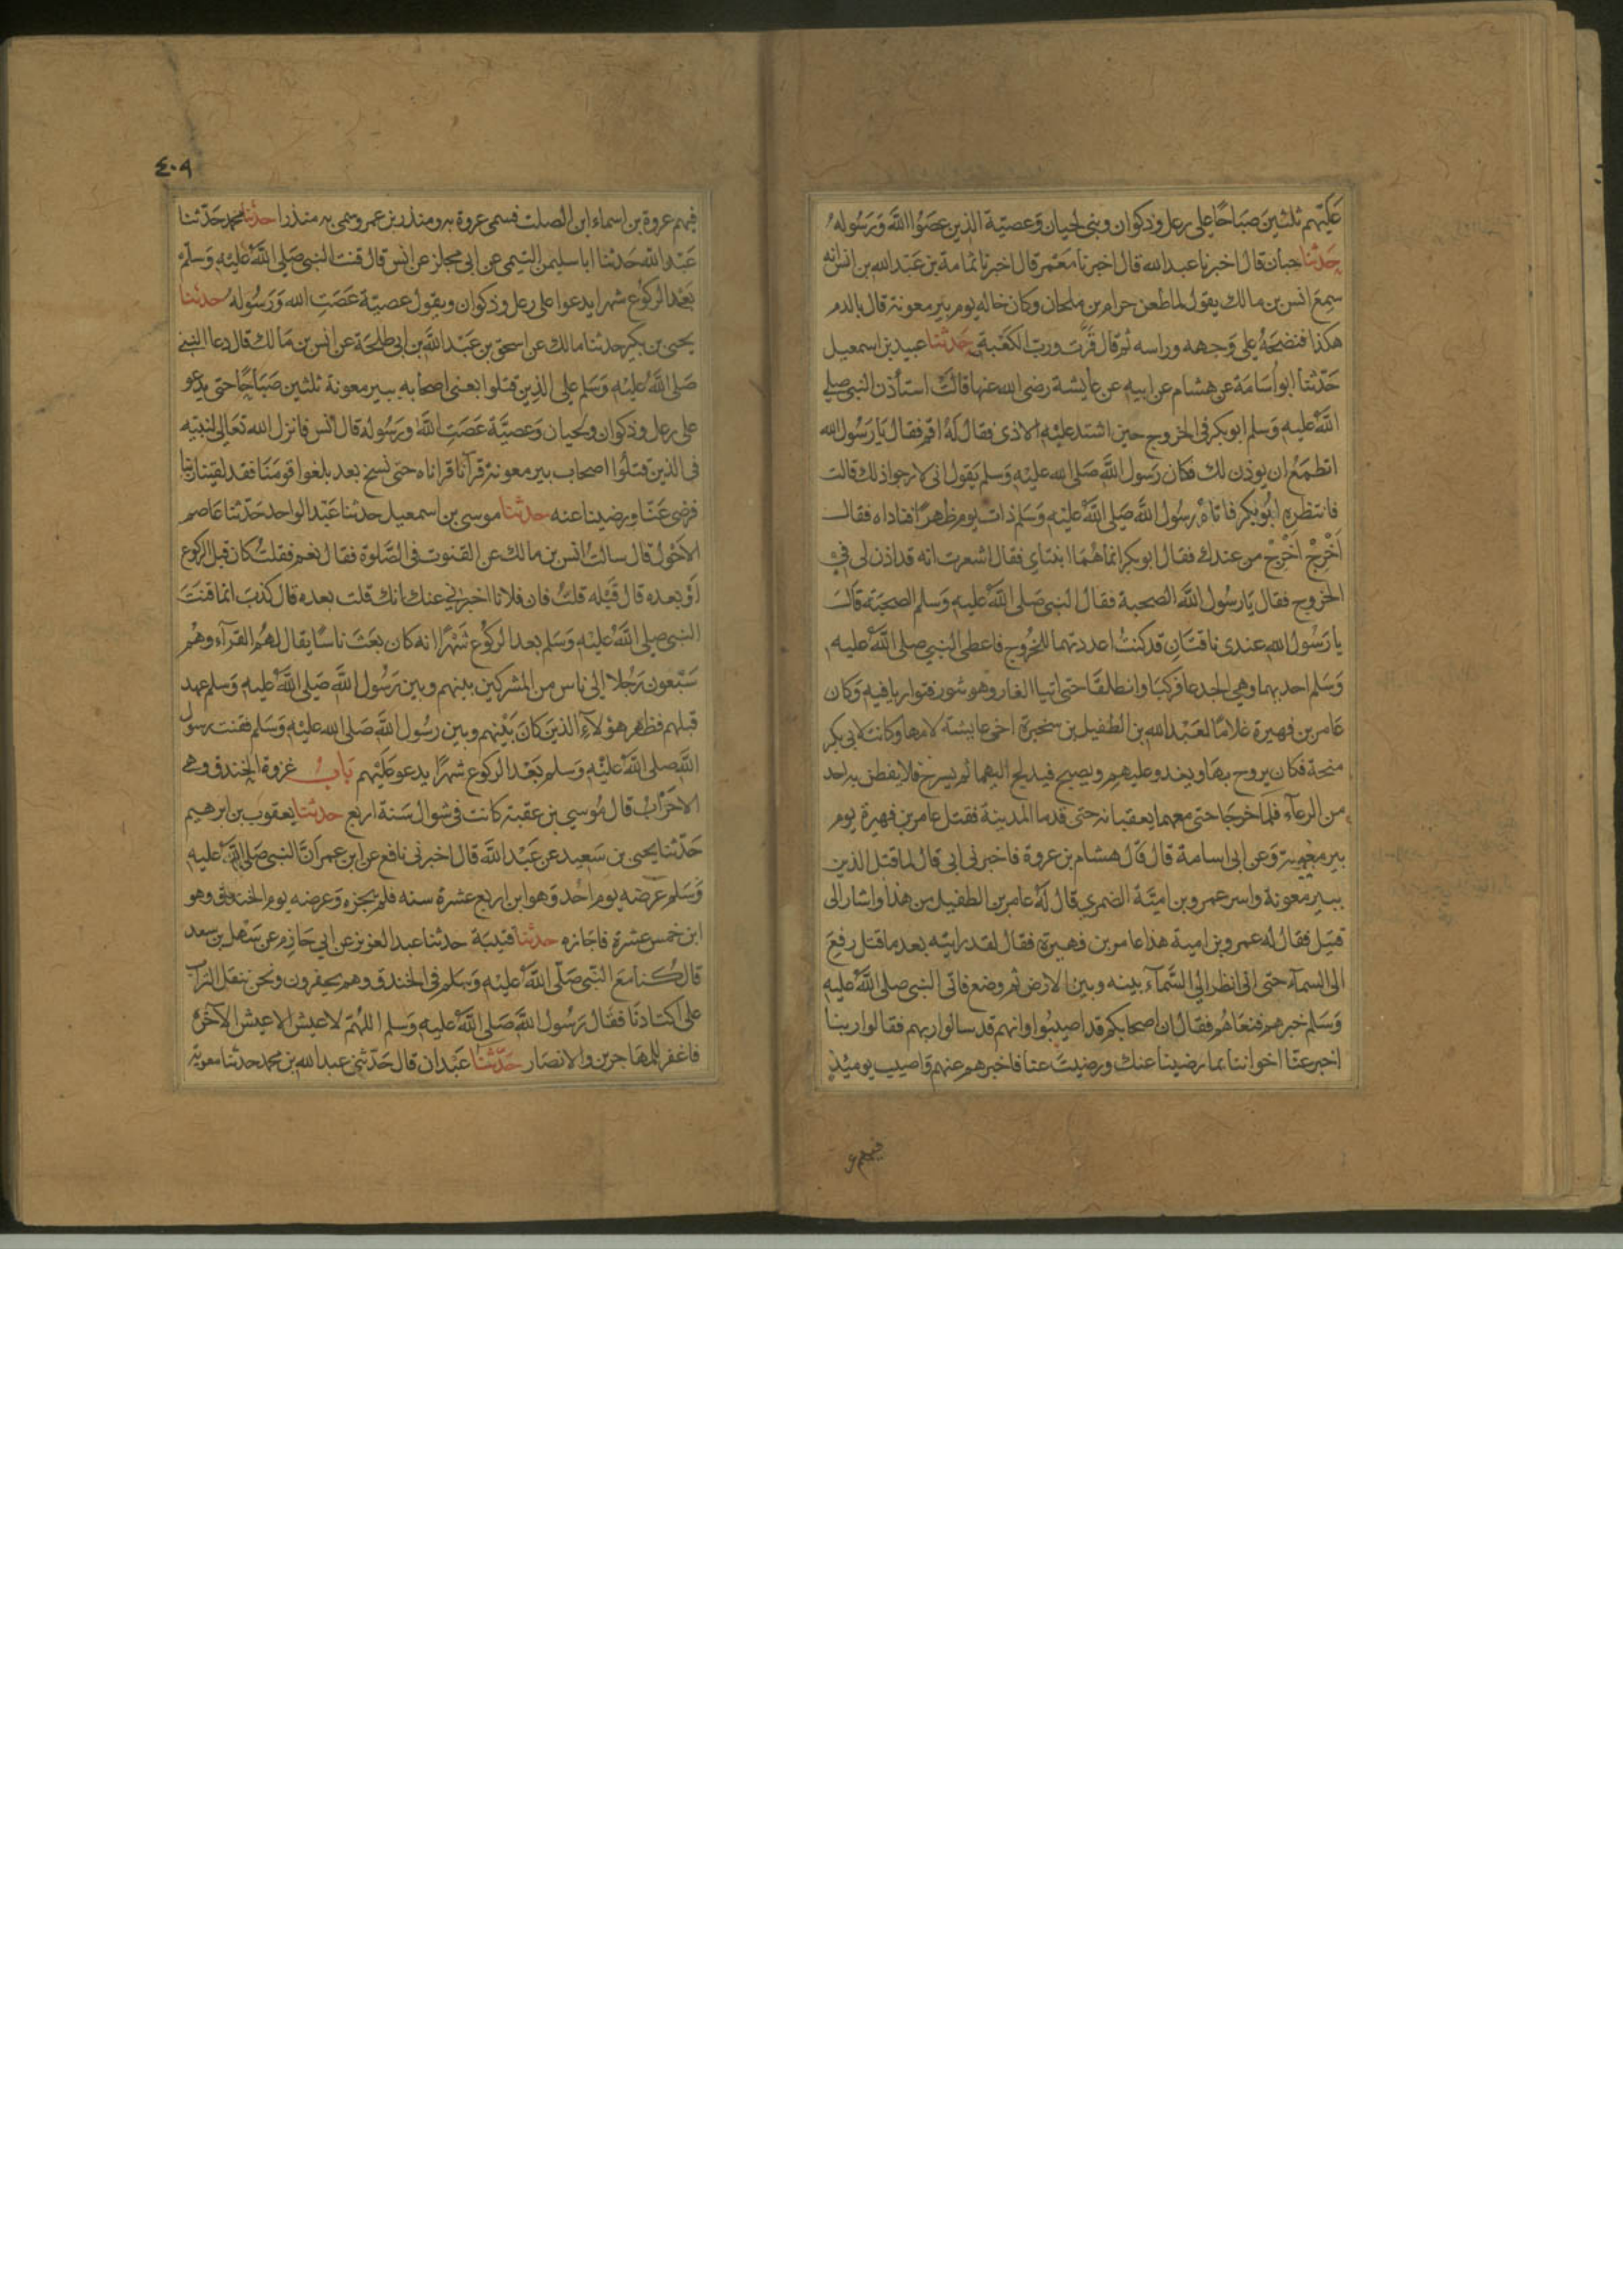 عليهم ثلثين صباحا على رعل وذكوان وبنى لحيان وعصية الذين عصوا الله ورسوله
حدثنا حبان قال اخبرنا عبد الله قال اخبرنا معمر قال اخبرنا ثمامة بن عبد الله بن انس انه
سمع انس بن مالك يقول لما طعن حرام بن ملحان وكان خاله يوم بير معونة قال بالدم
هكذا فنضحه على وجهه وراسه ثم قال فزت ورب الكعبة حدثنا عبيد بن اسمعيل
حدثنا ابو اسامة عن هشام عن ابيه عن عايشة رضى الله عنها قالت استأذن النبى صلى
الله عليه وسلم ابو بكر فى الخروج حين اشتد عليه الاذى فقال له اقم فقال يا رسول الله
اتطمع ان يوذن لك فكان رسول الله صلى الله عليه وسلم يقول انى لارجوا ذلك قالت
فانتظره ابو بكر فاتاه رسول الله صلى الله عليه وسلم ذات يوم ظهرا فناداه فقال
اخرج اخرج من عندك فقال ابو بكر انما هما ابنتاي فقال اشعرت انه قد اذن لى فى
الخروج فقال يا رسول الله الصحبة فقال النبى صلى الله عليه وسلم الصحبة قال
يا رسول الله عندى ناقتان قد كنت اعددتهما للخروج فاعطى النبي صلى الله عليه
وسلم احديهما وهي الجدعا فركبا وانطلقا حتى اتيا الغار وهو بثور فتواريا فيه وكان
عامر بن فهيرة غلاما لعبد الله بن الطفيل بن سخبرة اخى عايشة لامها وكانت لابى بكر
منحة فكان يروح بها ويغدو عليهم ويصبح فيدلج اليهما ثم يسرح فلا يفطن به احد
من الرعآء فلما خرجا خرج معهما يعقبانه حتى قدما المدينة فقتل عامر بن فهيرة يوم
بير معونة وعن ابى اسامة قال قال هشام بن عروة فاخبرنى ابى قال لما قتل الذين
ببير معونة واسر عمرو بن امية الضمرى قال له عامر بن الطفيل من هذا واشار الى
قتيل فقال له عمرو بن امية هذا عامر بن فهيرة فقال لقد رايته بعد ما قتل رفع
الى السمآء حتى انى انظر الى السمآء بينه وبين الارض ثم وضع فاتى النبى صلى الله عليه
وسلم خبرهم فنعاهم فقال ان اصحابكم قد اصيبوا وانهم قد سالوا ربهم فقالوا ربنا
اخبر عنا اخواننا بما رضينا عنك ورضيت عنا فاخبرهم عنهم واصيب يومئذ
فيهم
٤٠٩
فيهم عروة بن اسماء ابن الصلت فسمى عروة به ومنذر بن عمرو سمى به منذرا حدثنا محمد حدثنا
عبد الله حدثنا ابا سليمن التيمى عن ابى مجلز عن انس قال قنت النبى صلى الله عليه وسلم
بعد الركوع شهرا يدعوا على رعل وذكوان ويقول عصية عصت الله ورسوله حدثنا
يحيى بن بكير حدثنا مالك عن اسحق بن عبد الله بن ابى طلحة عن انس بن مالك قال دعا النبى
صلى الله عليه وسلم على الذين قتلوا يعنى اصحابه ببير معونة ثلثين صباحا حتى يدعو
على رعل وذكوان ولحيان وعصية عصت الله ورسوله قال انس فانزل الله تعالى لنبيه
فى الذين قتلوا اصحاب بير معونة قرآنا قراناه حتى نسخ بعد بلغوا قومنا فقد لقينا ربنا
فرضى عنا ورضينا عنه حدثنا موسى بن اسمعيل حدثنا عبد الواحد حدثنا عاصم
الاحول قال سالت انس بن مالك عن القنوت فى الصلوة فقال نعم فقلت كان قبل الركوع
او بعده قال قبله قلت فان فلانا اخبرنى عنك انك قلت بعده قال كذب انما قنت
النبى صلى الله عليه وسلم بعد الركوع شهرا انه كان بعث ناسا يقال لهم القرآء وهم
سبعون رجلا الى ناس من المشركين بينهم وبين رسول الله صلى الله عليه وسلم عهد
قبلهم فظهر هؤلآء الذين كان بينهم وبين رسول الله صلى الله عليه وسلم فقنت رسول
الله صلى الله عليه وسلم بعد الركوع شهرا يدعو عليهم باب غزوة الخندق وهى
الاحزاب قال موسى بن عقبة كانت فى شوال سنة اربع حدثنا يعقوب بن ابرهيم
حدثنا يحيى بن سعيد عن عبد الله قال اخبرنى نافع عن ابن عمر ان النبى صلى الله عليه
وسلم عرضه يوم احد وهو ابن اربع عشرة سنه فلم يجزه وعرضه يوم الخندق وهو
ابن خمس عشرة فاجازه حدثنا قتيبة حدثنا عبد العزيز عن ابى حازم عن سهل بن سعد
قال كنا مع النبى صلى الله عليه وسلم فى الخندق وهم يحفرون ونحن ننقل التراب
على اكتادنا فقال رسول الله صلى الله عليه وسلم اللهم لا عيش الا عيش الآخره
فاغفر للمهاجرين والانصار حدثنا عبدان قال حدثنى عبد الله بن محمد حدثنا معوية